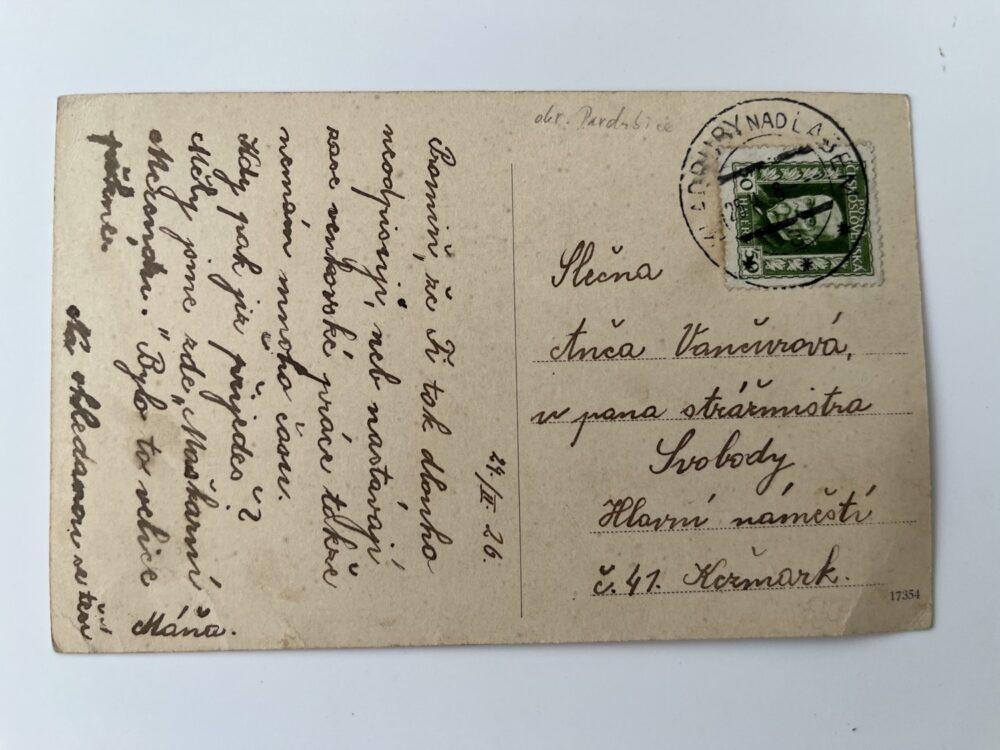 okr. Pardubice
KLADRUBY NAD LAB
POŠTA
ČESKOSLOVENSKÁ
50 HALÉŘ 50
24./II. 26.
Promiň, že Ti tak dlouho
neodpisuji, neb nastávají
zase venkovské práce takže
nemám mnoho času.
Kdy pak již přijedeš?
Měly jsme zde „Maškarní
Merendu." Bylo to velice
Na shledanou se těší
Máňa.
Slečna
Anča Vančurová,
u pana strážmistra
Svobody
Hlavní náměstí
č. 41. Kežmark.
17354